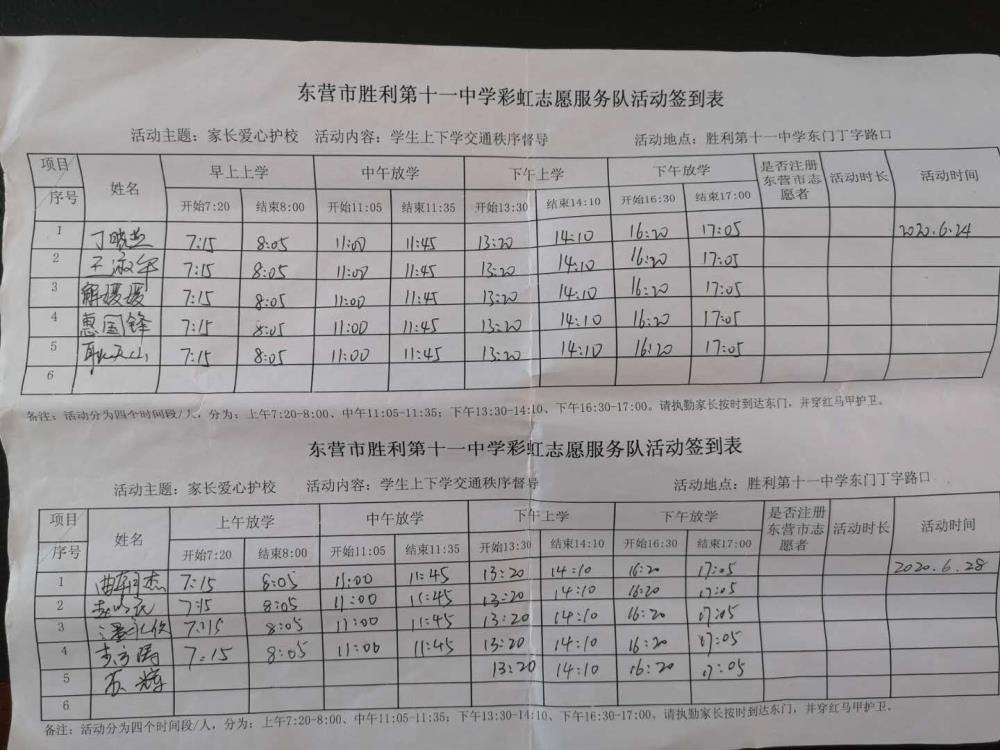 东营市胜利第十一中学彩虹志愿服务队活动签到表
活动主题：家长爱心护校 活动内容：学生上下学交通秩序督导 活动地点：胜利第十一中学东门丁字路口
项目 姓名 早上上学 中午放学 下午上学 下午放学 是否注册东营市志愿者 活动时长 活动时间
序号 开始7:20 结束8:00 开始11:05 结束11:35 开始13:30 结束14:10 开始16:30 结束17:00
1 丁晓燕 7:15 8:05 11:00 11:45 13:20 14:10 16:20 17:05 2020.6.24
2 王淑 7:15 8:05 11:00 11:45 13:20 14:10 16:20 17:05
3 解媛媛 7:15 8:05 11:00 11:45 13:20 14:10 16:20 17:05
4 惠国锋 7:15 8:05 11:00 11:45 13:20 14:10 16:20 17:05
5 耿天山 7:15 8:05 11:00 11:45 13:20 14:10 16:20 17:05
6
备注：活动分为四个时间段/人，分为：上午7:20-8:00、中午11:05-11:35；下午13:30-14:10、下午16:30-17:00。请执勤家长按时到达东门，并穿红马甲护卫。
东营市胜利第十一中学彩虹志愿服务队活动签到表
活动主题：家长爱心护校 活动内容：学生上下学交通秩序督导 活动地点：胜利第十一中学东门丁字路口
项目 姓名 上午放学 中午放学 下午上学 下午放学 是否注册东营市志愿者 活动时长 活动时间
序号 开始7:20 结束8:00 开始11:05 结束11:35 开始13:30 结束14:10 开始16:30 结束17:00
1 7:15 8:05 11:00 11:45 13:20 14:10 16:20 17:05 2020.6.28
2 7:15 8:05 11:00 11:45 13:20 14:10 16:20 17:05
3 7:15 8:05 11:00 11:45 13:20 14:10 16:20 17:05
4 7:15 8:05 11:00 11:45 13:20 14:10 16:20 17:05
5 辉 13:20 14:10 16:20 17:05
6
备注：活动分为四个时间段/人，分为：上午7:20-8:00、中午11:05-11:35；下午13:30-14:10、下午16:30-17:00。请执勤家长按时到达东门，并穿红马甲护卫。